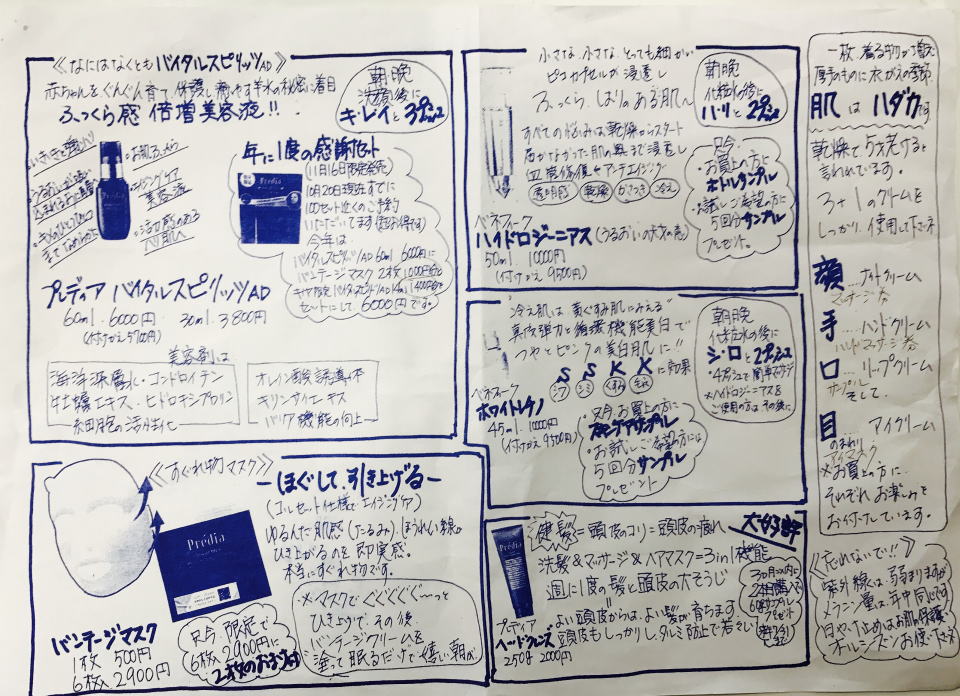 《なにはなくとも バイタルスピリッツAD》
赤ちゃんをぐんぐん育て、保護し、癒やす羊水の秘密に着目
ふっくら感 倍増美容液!!
朝晩
洗顔後に
キ・レイと 3プッシュ
お肌ふっくら
エイジングケア
美容液
活力感のある
ハリ肌へ
Prédia
年に1度の感謝セット
(11月16日限定発売)
10月20日現在すでに
100セット近くのご予約
いただいてます(超お得です)
今年は
バイタルスピリッツAD 60ml 6000円に
バンテージマスク 2枚 1000円分と
セットにして 6000円です。
プレディア バイタルスピリッツAD
60ml 6000円 30ml 3800円
(付けかえ5700円)
美容剤は
海洋深層水・コンドロイチン
牡蠣エキス、ヒドロキシプロリン
細胞の活性化
オレイン酸誘導体
キリンサイエキス
バリア機能の向上
《すぐれ物マスク》
ーほぐして、引き上げるー
(コルセット仕様でエイジングケア)
ゆるんだ肌感(たるみ)、ほうれい線が
ひき上がるのを即実感。
本当にすぐれ物です。
Prédia
バンテージマスク
1枚 500円
6枚 2900円
只今、限定で
6枚 2900円に
2枚のおまけ付
※マスクでぐぐぐぐぐ〜っと
ひき上げて、その後、
バンテージクリームを
塗って眠るだけで嬉しい朝が
小さな 小さな とっても細かい
ピコカプセルが浸透し
ふっくら、はりのある肌へ
すべての悩みは乾燥からスタート
届かなかった肌の奥まで浸透し
血管修復でアンチエイジング
透明感 乾燥 かさつき 冷え
朝晩
化粧水の後に
ハ・リと 2プッシュ
只今
お買上の方に
ボトルサンプル
お試しご希望の方に
5回分サンプル
プレゼント。
ベネフィーク
ハイドロジーニアス (うるおいの天才の意)
50ml 10000円
(付けかえ 9500円)
"冷え肌は、黄ぐすみ肌にみえる"
真皮弾力と循環機能美白で
つやとピンクの美白肌に"
S S K X に効果
シワ シミ
朝晩
化粧水の後に
シ・ロと 2プッシュ
※ハイドロジーニアスを
ご使用の方は、その後に
ベネフィーク
ホワイトレチノ
45ml 10000円
(付けかえ 9500円)
只今、お買上の方に
お試しご希望の方には
5回分サンプル
プレゼント
健髪 = 頭皮のコリ = 頭皮の疲れ
大好評
洗髪&マッサージ&ヘアマスク=3in1機能
週に1度の髪と頭皮の大そうじ
よい頭皮からは、よい髪が育ちます
頭皮もしっかりし、タルミ防止で若さを!
Prédia
プレディア
ヘッドクレンズ
250g 2000円
3ヶ月以内に
2本購入で
プレゼント
一枚、着る物が増え
厚手のものに衣がえの季節
肌はハダカです
乾燥で5才老けると
言われています。
3+1のクリームを
しっかり、使用して下さいネ
顔…ナイトクリーム
マッサージ券
手…ハンドクリーム
ハンドマッサージ券
口…リップクリーム
サンプル
そして、
目 アイクリーム
のまわり
アイマスク
※お買上の方に、
それぞれお楽しみを
お付けしています。
《忘れないで!!》
紫外線は、弱まりますが
メラニン量は、年中同じです
日やけ止めはお肌の保護に
オールシーズンお使い下さいネ